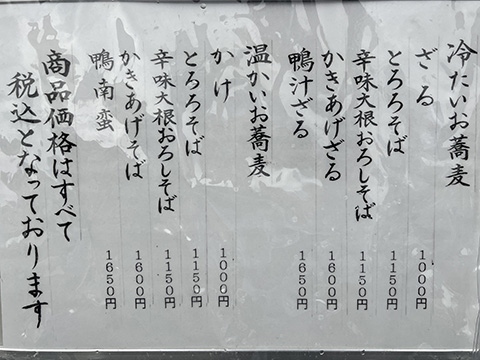 冷たいお蕎麦
ざる 1000円
とろろそば 1150円
辛味大根おろしそば 1150円
かきあげざる 1600円
鴨汁ざる 1650円
温かいお蕎麦
かけ 1000円
とろろそば 1150円
辛味大根おろしそば 1150円
かきあげそば 1600円
鴨南蛮 1650円
商品価格はすべて
税込となっております